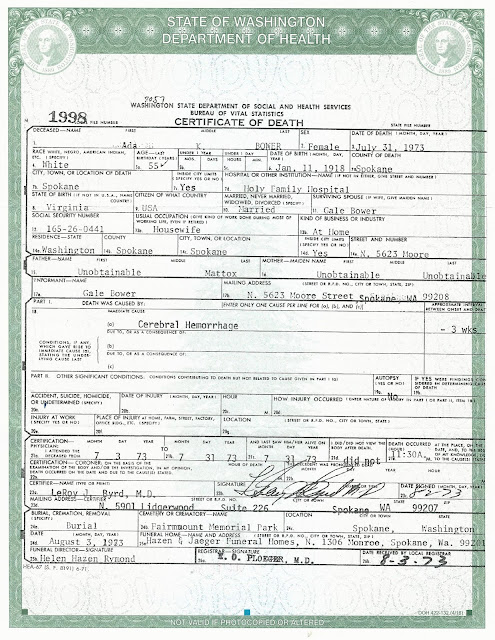 STATE OF WASHINGTON
DEPARTMENT OF HEALTH
WASHINGTON STATE DEPARTMENT OF SOCIAL AND HEALTH SERVICES
BUREAU OF VITAL STATISTICS
1998 FILE NUMBER CERTIFICATE OF DEATH STATE FILE NUMBER
DECEASED—NAME FIRST MIDDLE LAST SEX DATE OF DEATH (MONTH, DAY, YEAR)
K. BONER 2. Female 3. July 31, 1973
RACE WHITE, NEGRO, AMERICAN INDIAN, ETC. (SPECIFY) AGE—LAST BIRTHDAY (YEARS) UNDER 1 YEAR UNDER 1 DAY DATE OF BIRTH (MONTH, DAY, YEAR) COUNTY OF DEATH
MOS. DAYS HOURS MIN.
4. White 5a. 55 6. Jan. 11, 1918 7a. Spokane
CITY, TOWN, OR LOCATION OF DEATH INSIDE CITY LIMITS (SPECIFY YES OR NO) HOSPITAL OR OTHER INSTITUTION—NAME (IF NOT IN EITHER, GIVE STREET AND NUMBER)
7b. Spokane 7c. Yes 7d. Holy Family Hospital
STATE OF BIRTH (IF NOT IN U.S.A., NAME COUNTRY) CITIZEN OF WHAT COUNTRY MARRIED, NEVER MARRIED, WIDOWED, DIVORCED (SPECIFY) SURVIVING SPOUSE (IF WIFE, GIVE MAIDEN NAME)
8. Virginia 9. USA 10. Married 11. Gale Bower
SOCIAL SECURITY NUMBER USUAL OCCUPATION (GIVE KIND OF WORK DONE DURING MOST OF WORKING LIFE, EVEN IF RETIRED) KIND OF BUSINESS OR INDUSTRY
12. 165-26-0441 13a. Housewife 13b. At Home
RESIDENCE—STATE COUNTY CITY, TOWN, OR LOCATION INSIDE CITY LIMITS (SPECIFY YES OR NO) STREET AND NUMBER
14a. Washington 14b. Spokane 14c. Spokane 14d. Yes 14e. N. 5623 Moore
FATHER—NAME FIRST MIDDLE LAST MOTHER—MAIDEN NAME FIRST MIDDLE LAST
15. Unobtainable Mattox 16. Unobtainable Unobtainable
INFORMANT—NAME MAILING ADDRESS (STREET OR R.F.D. NO., CITY OR TOWN, STATE, ZIP)
17a. Gale Bower 17b. N. 5623 Moore Street Spokane, WA 99208
PART I. DEATH WAS CAUSED BY: [ENTER ONLY ONE CAUSE PER LINE FOR (a), (b), AND (c)] APPROXIMATE INTERVAL
BETWEEN ONSET AND DEATH
18. IMMEDIATE CAUSE
(a) Cerebral Hemorrhage - 3 wks
DUE TO, OR AS A CONSEQUENCE OF:
CONDITIONS, IF ANY, WHICH GAVE RISE TO IMMEDIATE CAUSE (a), STATING THE UNDERLYING CAUSE LAST
(b)
DUE TO, OR AS A CONSEQUENCE OF:
(c)
PART II. OTHER SIGNIFICANT CONDITIONS: CONDITIONS CONTRIBUTING TO DEATH BUT NOT RELATED TO CAUSE GIVEN IN PART I (a) AUTOPSY (YES OR NO) IF YES WERE FINDINGS
No
ACCIDENT, SUICIDE, HOMICIDE, OR UNDETERMINED (SPECIFY) DATE OF INJURY (MONTH, DAY, YEAR) HOUR HOW INJURY OCCURRED (ENTER NATURE OF INJURY IN PART I OR PART II, ITEM 18)
20a. 20b. 20c. M. 20d.
INJURY AT WORK (SPECIFY YES OR NO) PLACE OF INJURY AT HOME, FARM, STREET, FACTORY, OFFICE BLDG., ETC. (SPECIFY) LOCATION (STREET OR R.F.D. NO., CITY OR TOWN, STATE)
20e. 20f. 20g.
CERTIFICATION—PHYSICIAN: MONTH DAY YEAR MONTH DAY YEAR AND LAST SAW HIM/HER ALIVE ON MONTH DAY YEAR I DID/DID NOT VIEW THE BODY AFTER DEATH. DEATH OCCURRED
I ATTENDED THE DECEASED FROM 7 3 73 TO 7 31 73 7 31 73 Did not 11:30A.
CERTIFICATION—CORONER: ON THE BASIS OF THE EXAMINATION OF THE BODY AND/OR THE INVESTIGATION, IN MY OPINION, DEATH OCCURRED ON THE DATE AND DUE TO THE CAUSE(S) STATED. HOUR OF DEATH
CERTIFIER—NAME (TYPE OR PRINT) SIGNATURE DATE SIGNED (MONTH, DAY, YEAR)
23a. LeRoy L. Byrd, M.D. 8-2-73
MAILING ADDRESS—CERTIFIER STREET OR R.F.D. NO. CITY OR TOWN STATE ZIP
N. 5901 Lidgerwood Suite 226 Spokane WA 99207
BURIAL, CREMATION, REMOVAL (SPECIFY) CEMETERY OR CREMATORY—NAME LOCATION CITY OR TOWN STATE
24a. Burial 24b. Fairmount Memorial Park 24c. Spokane, Washington
DATE (MONTH, DAY, YEAR) FUNERAL HOME—NAME AND ADDRESS (STREET OR R.F.D. NO., CITY OR TOWN, STATE, ZIP)
24d. August 3, 1973 25a. Hazen & Jaeger Funeral Homes, N. 1306 Monroe, Spokane, Wa. 99201
FUNERAL DIRECTOR—SIGNATURE REGISTRAR—SIGNATURE DATE RECEIVED BY LOCAL REGISTRAR
25b. Helen Hazen Rymond E. O. PLOEGER, M.D. 8-3-73
NOT VALID IF PHOTOCOPIED OR ALTERED